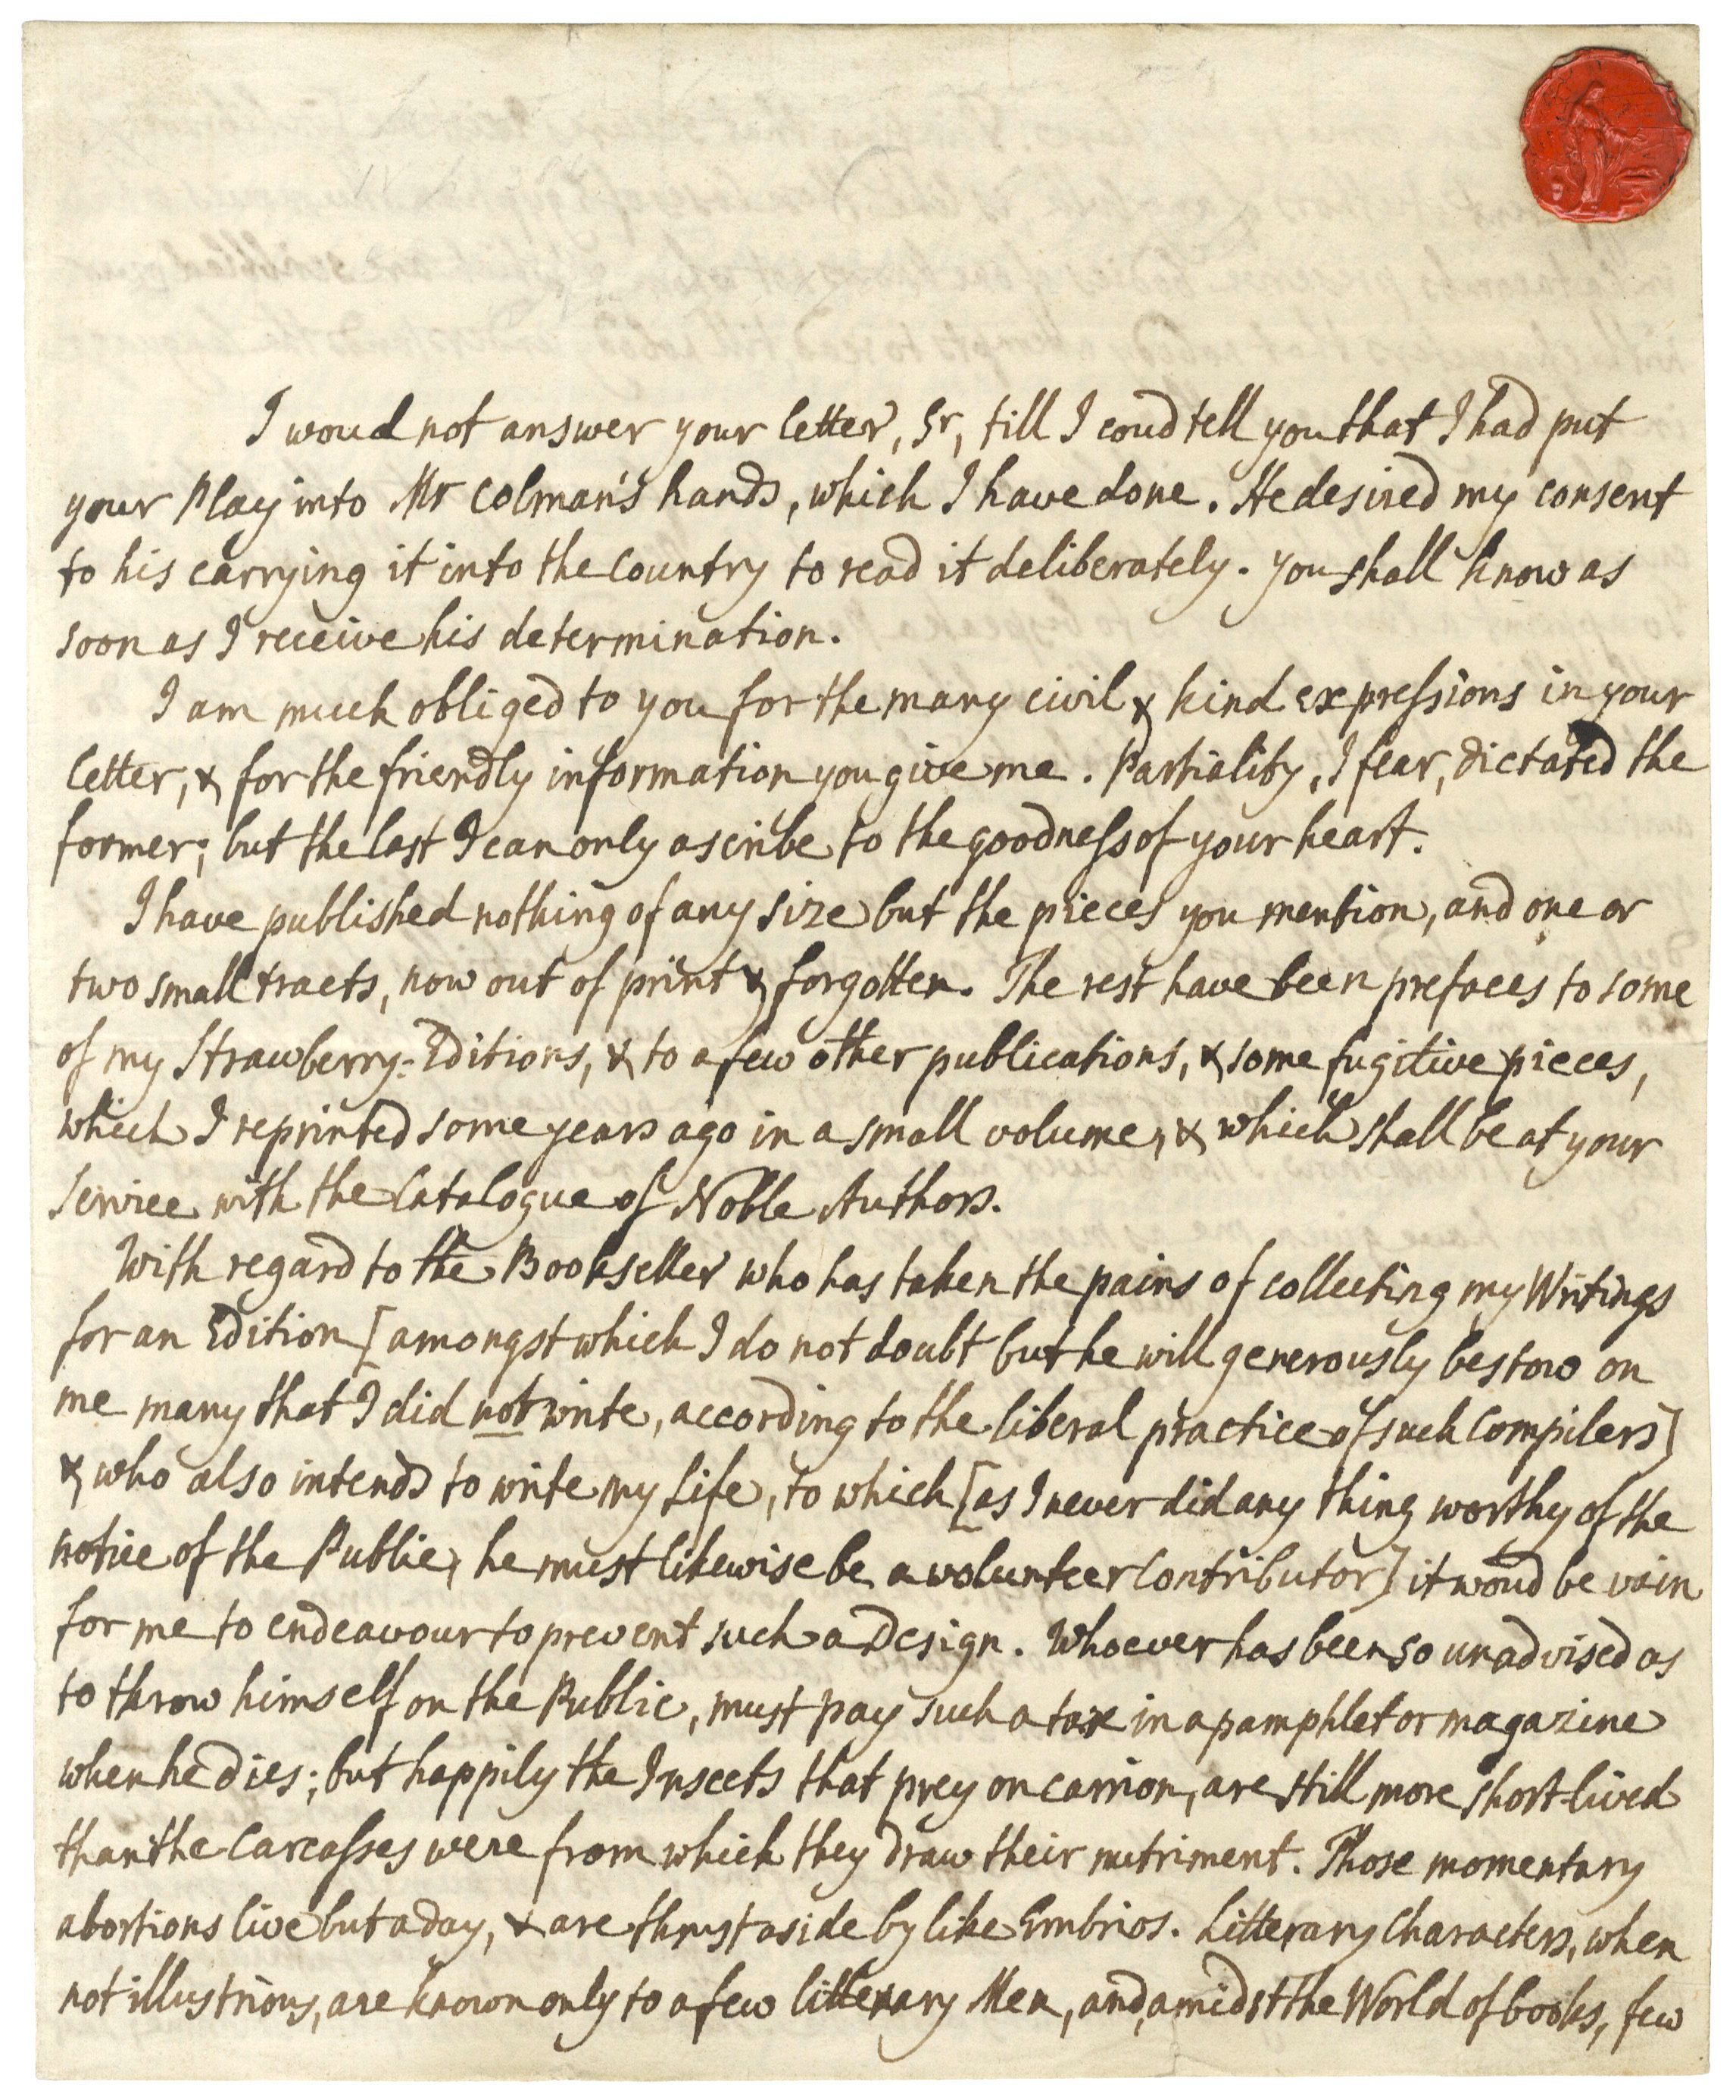 I woud not answer your letter, Sr, till I coud tell you that I had put
your Play into Mr Colman's hands, which I have done. He desired my consent
to his carrying it into the Country to read it deliberately. You shall know as
soon as I receive his determination.
I am much obliged to you for the many civil & kind expreſsions in your
letter, & for the friendly information you give me. Partiality, I fear, dictated the
former; but the last I can only ascribe to the goodneſs of your heart.
I have published nothing of any size but the pieces you mention, and one or
two small tracts, now out of print & forgotten. The rest have been prefaces to some
of my Strawberry-Editions, & to a few other publications, & some fugitive pieces,
which I reprinted some years ago in a small volume, & which shall be at your
service with the Catalogue of Noble Authors.
With regard to the Bookseller who has taken the pains of collecting my Writings
for an Edition [amongst which I do not doubt but he will generously bestow on
me many that I did not write, according to the liberal practice of such Compilers]
& who also intends to write my Life, to which [as I never did any thing worthy of the
notice of the Public, he must likewise be a volunteer Contributor] it woud be vain
for me to endeavour to prevent such a Design. Whoever has been so unadvised as
to throw himself on the Public, must pay such a tax in a pamphlet or magazine
when he dies; but happily the Insects that prey on carrion, are still more short-lived
than the Carcaſses were from which they draw their nutriment. Those momentary
abortions live but a day, & are thrust aside by like Embrios. Litterary Characters, when
not illustrious, are known only to a few litterary Men, and, amidst the World of books, few